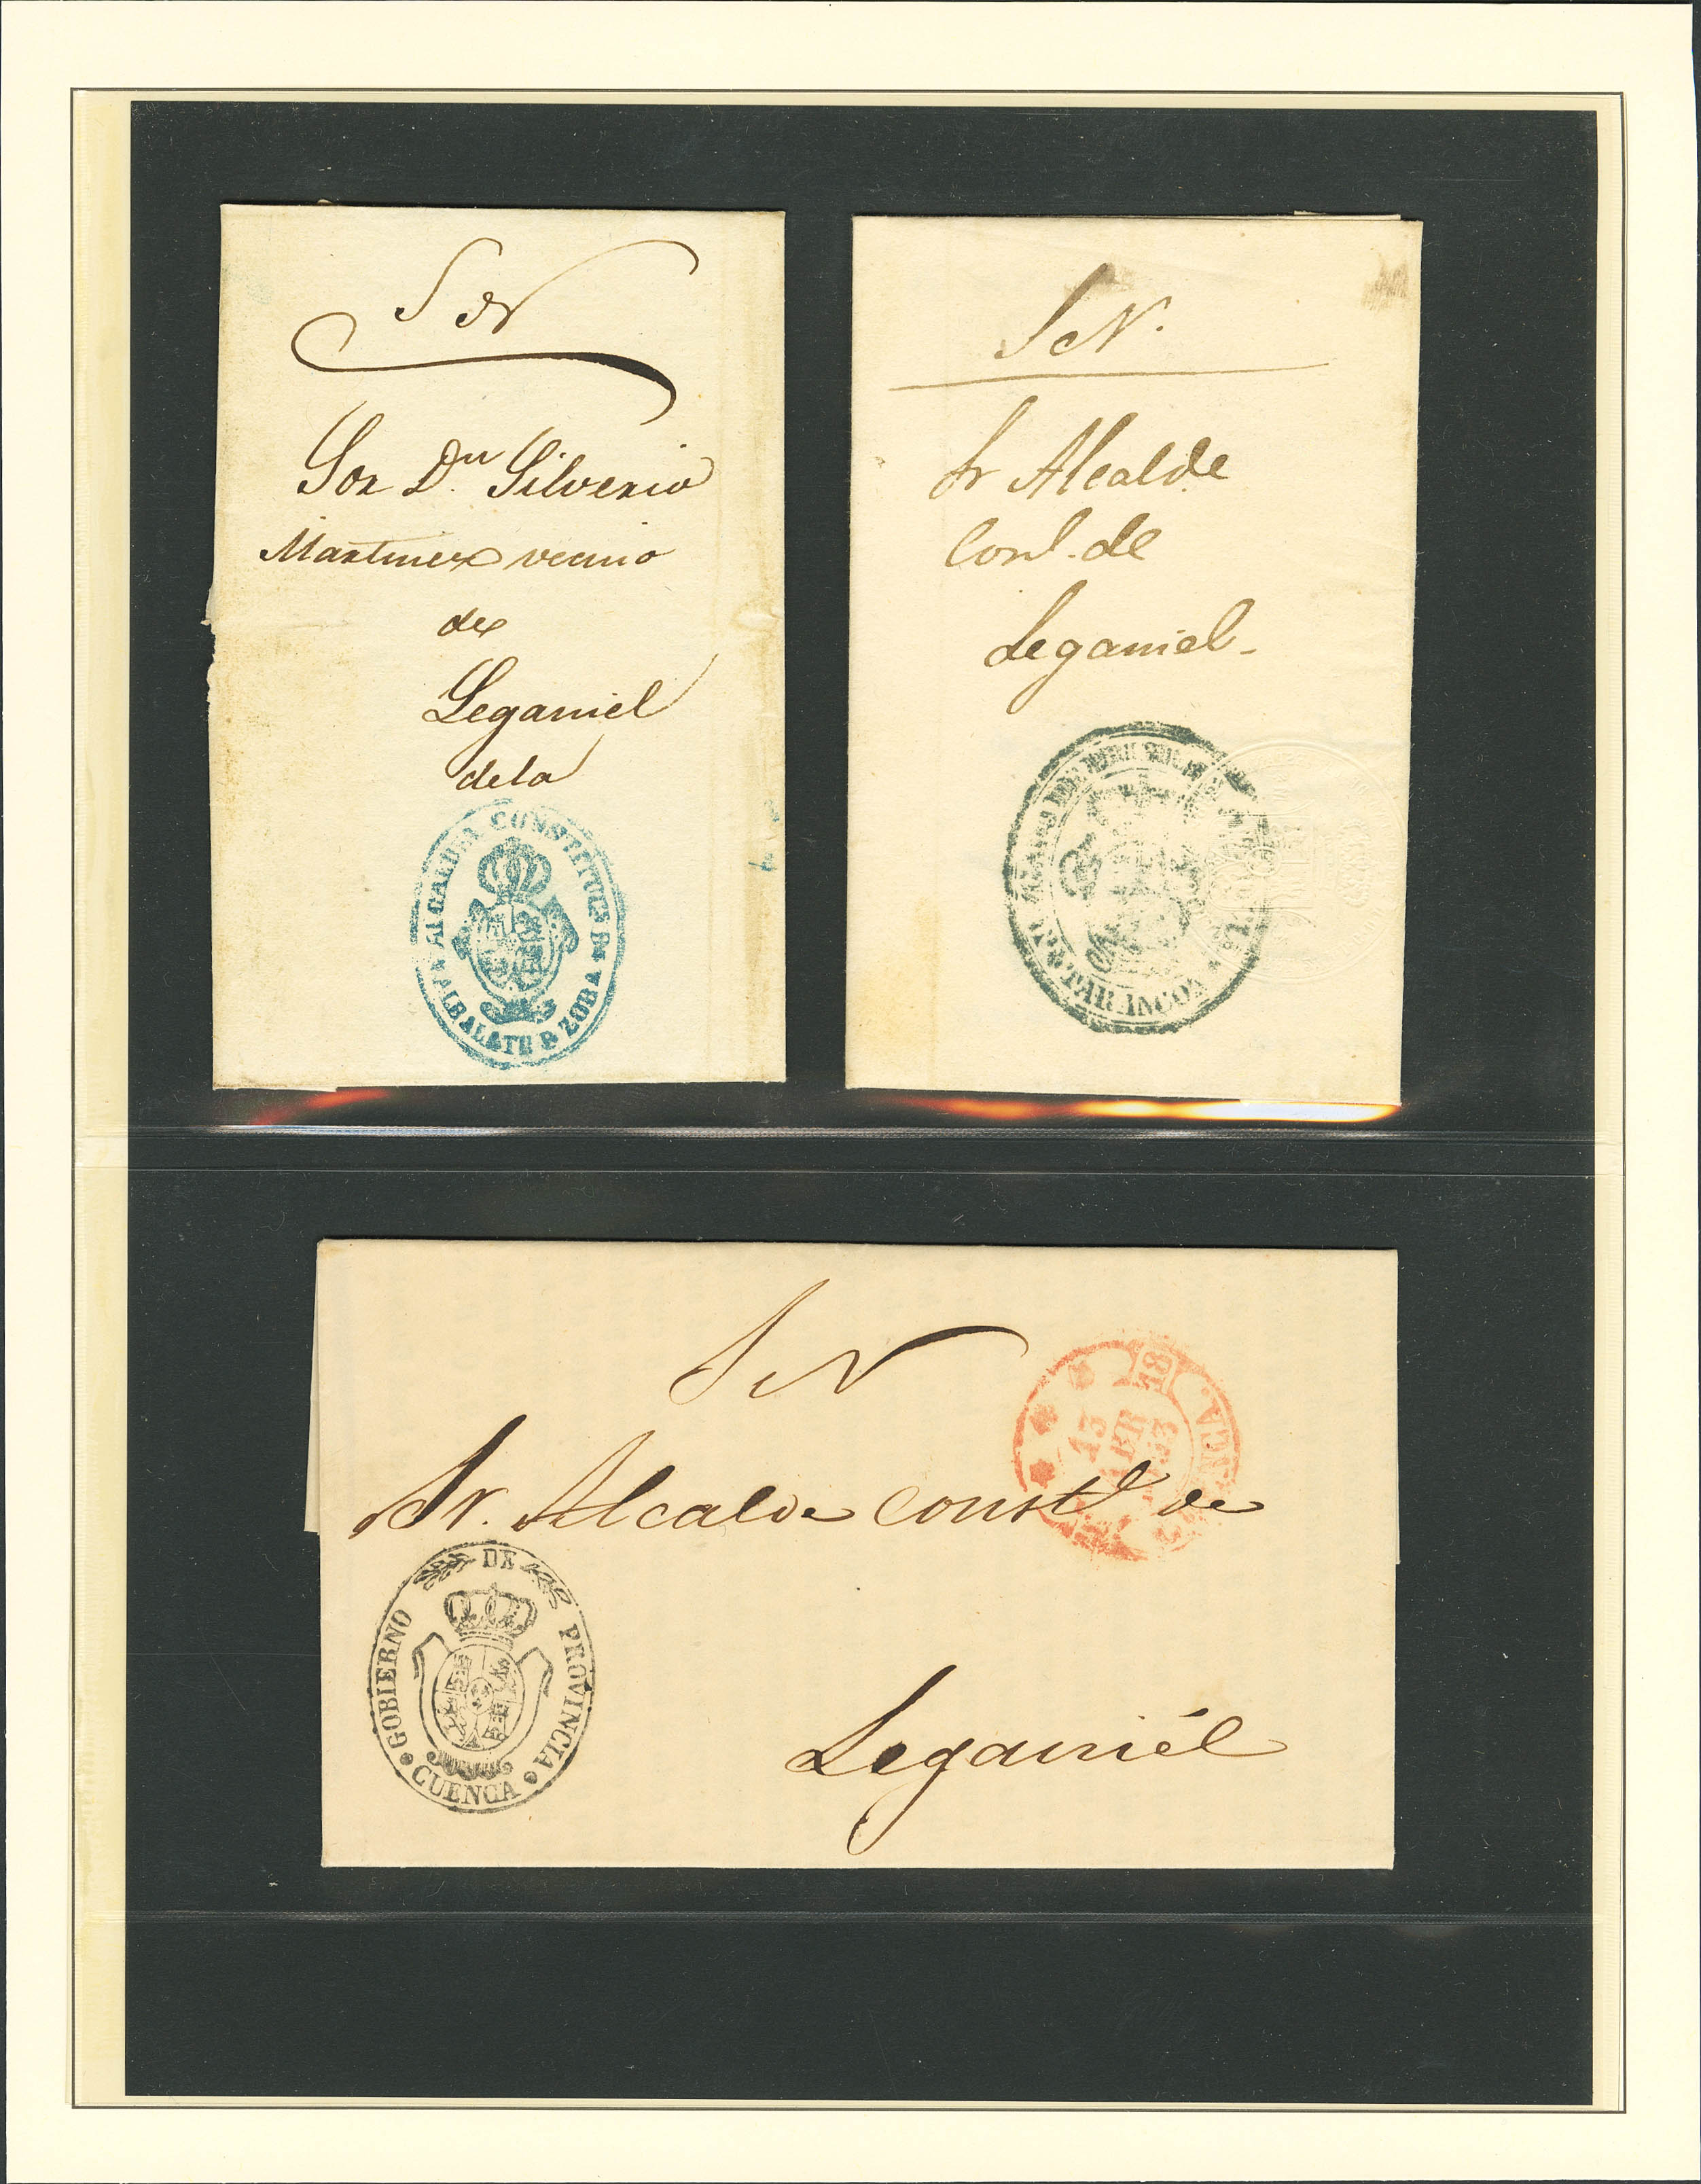 S N
Sor Dn Silverio
Martinez vecino
de
Leganiel
dela
ALCALDIA CONSTITUCL D
ALBALATE D ZORA
S N.
Sr Alcalde
Conl. de
Leganiel-
TARANCON
S N
Sr. Alcalde constl de
Leganiél
18
13
ABR
GOBIERNO DE PROVINCIA
CUENCA